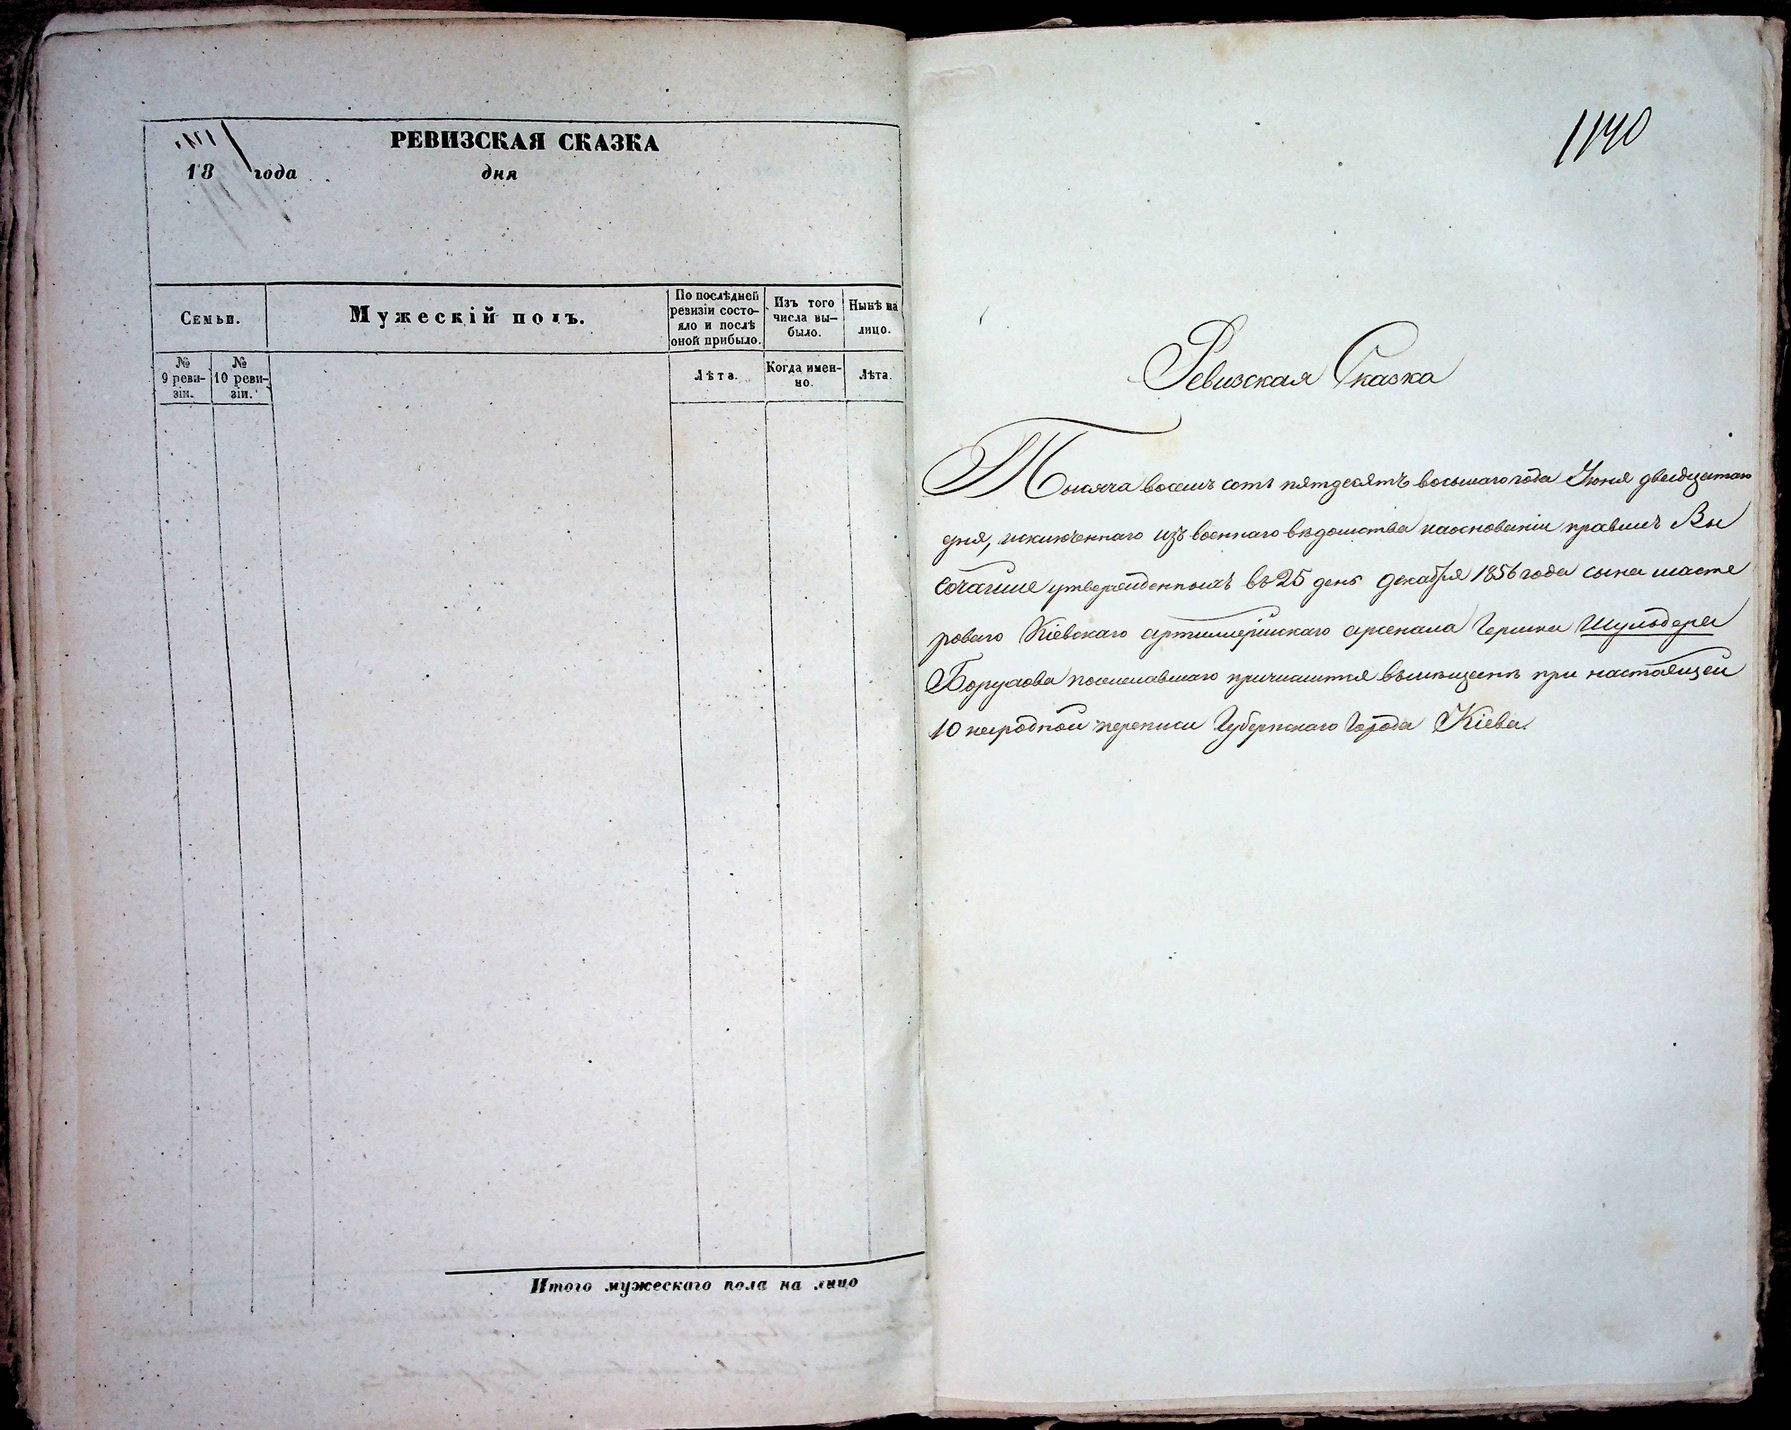 РЕВИЗСКАЯ СКАЗКА
18 года дня
Семьи.
Мужескій полъ.
По послѣдней
ревизіи состо-
яло и послѣ
оной прибыло.
Изъ того
числа вы-
было.
Нынѣ на
лицо.
№
9 реви-
зіи.
№
10 реви-
зіи.
Лѣта.
Когда имен-
но.
Лѣта.
Итого мужескаго пола на лицо
1140
Ревизская Сказка
Тысяча восемь сотъ пятдесятъ восьмаго года Июня двадцатаго
дня, исключеннаго изъ военнаго вѣдомства наосновании правилъ Вы
сочайше утвержденныхъ въ 25 день декабря 1856 года сына масте
роваго Кіевскаго артиллерійскаго арсенала Гершка Шульдера
при настоящей
10 народной переписи Губернскаго Города Кіева.